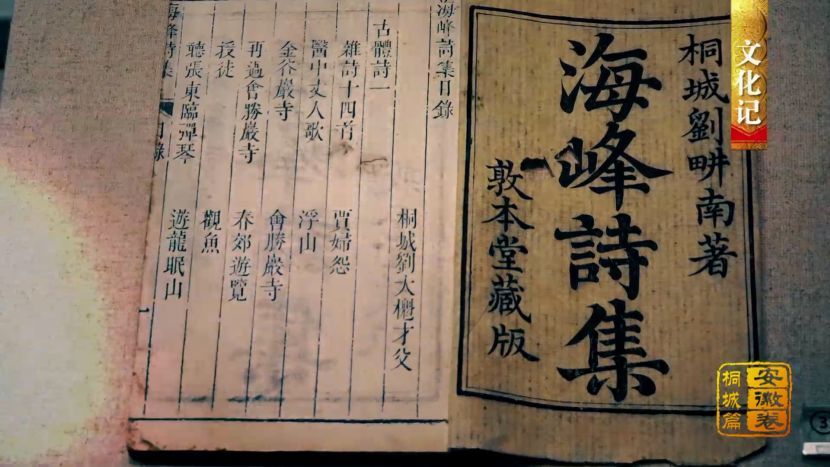 文化记
桐城劉畊南著
海峰詩集
敦本堂藏版
海峰詩集目錄
桐城劉大櫆才父
古體詩一
雜詩十四首 賈婦怨
醫中丈人歌 浮山
金谷巖寺 會勝巖寺
再過會勝巖寺 春郊遊覽
授徒 觀魚
聽張東臨彈琴 遊龍眠山
海峰詩集 目錄
安徽卷
桐城篇
③